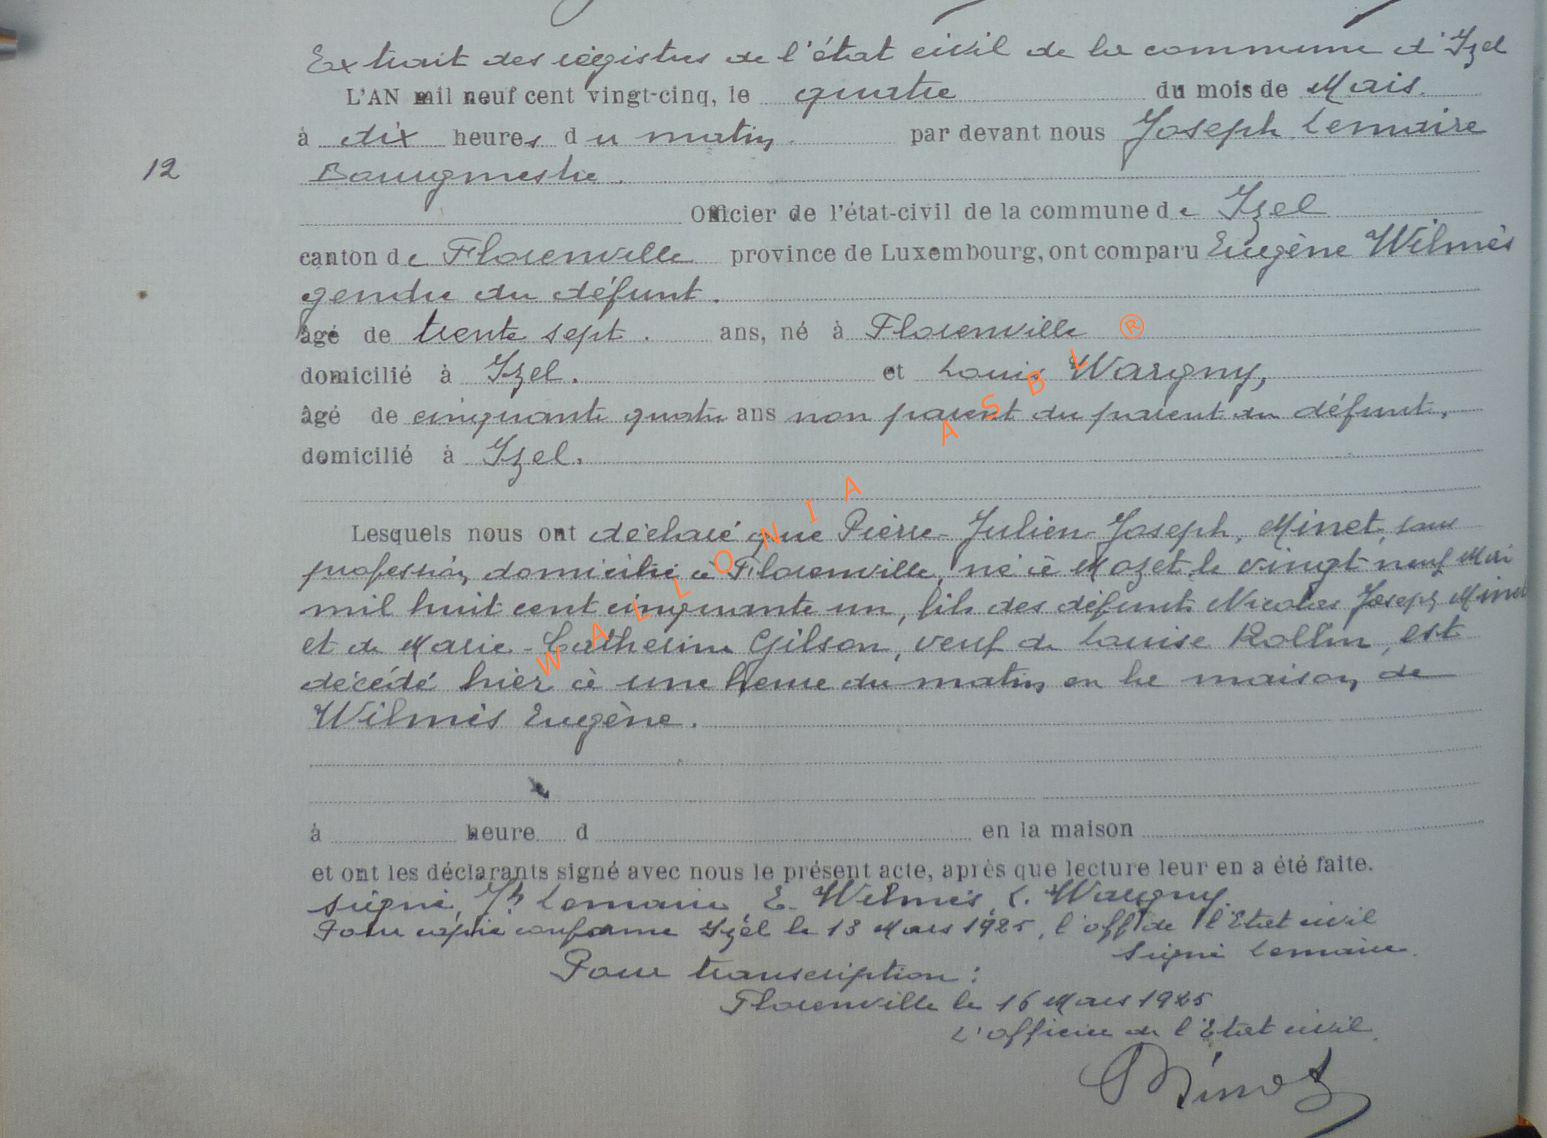 Extrait des registres de l'état civil de la commune d'Izel
L'AN mil neuf cent vingt-cinq, le quatre du mois de Mars.
à dix heures du matin. par devant nous Joseph Lemaire
12
Bourgmestre.
Officier de l'état-civil de la commune de Izel
canton de Florenville province de Luxembourg, ont comparu Eugène Wilmès
gendre du défunt.
âgé de trente sept. ans, né à Florenville
domicilié à Izel. et Louis Wargny,
âgé de cinquante quatre ans non parent du parent du défunt,
domicilié à Izel.
Lesquels nous ont déclaré que Pierre-Julien-Joseph, Minet, sans
profession, domicilié à Florenville, né à Mozet le vingt neuf Mai
mil huit cent cinquante un, fils des défunts Nicolas Joseph Minet
et de Marie-Catherine Gilson, veuf de Louise Rollin, est
décédé hier à une heure du matin en la maison de
Wilmès Eugène.
à heure d en la maison
et ont les déclarants signé avec nous le présent acte, après que lecture leur en a été faite.
signé, Jh Lemaire, E. Wilmès, L. Wargny.
Pour copie conforme Izel le 13 Mars 1925, l'off de l'Etat civil
signé Lemaire.
Pour transcription :
Florenville le 16 Mars 1925
L'officier de l'Etat civil.
WALLONIA ASBL ®